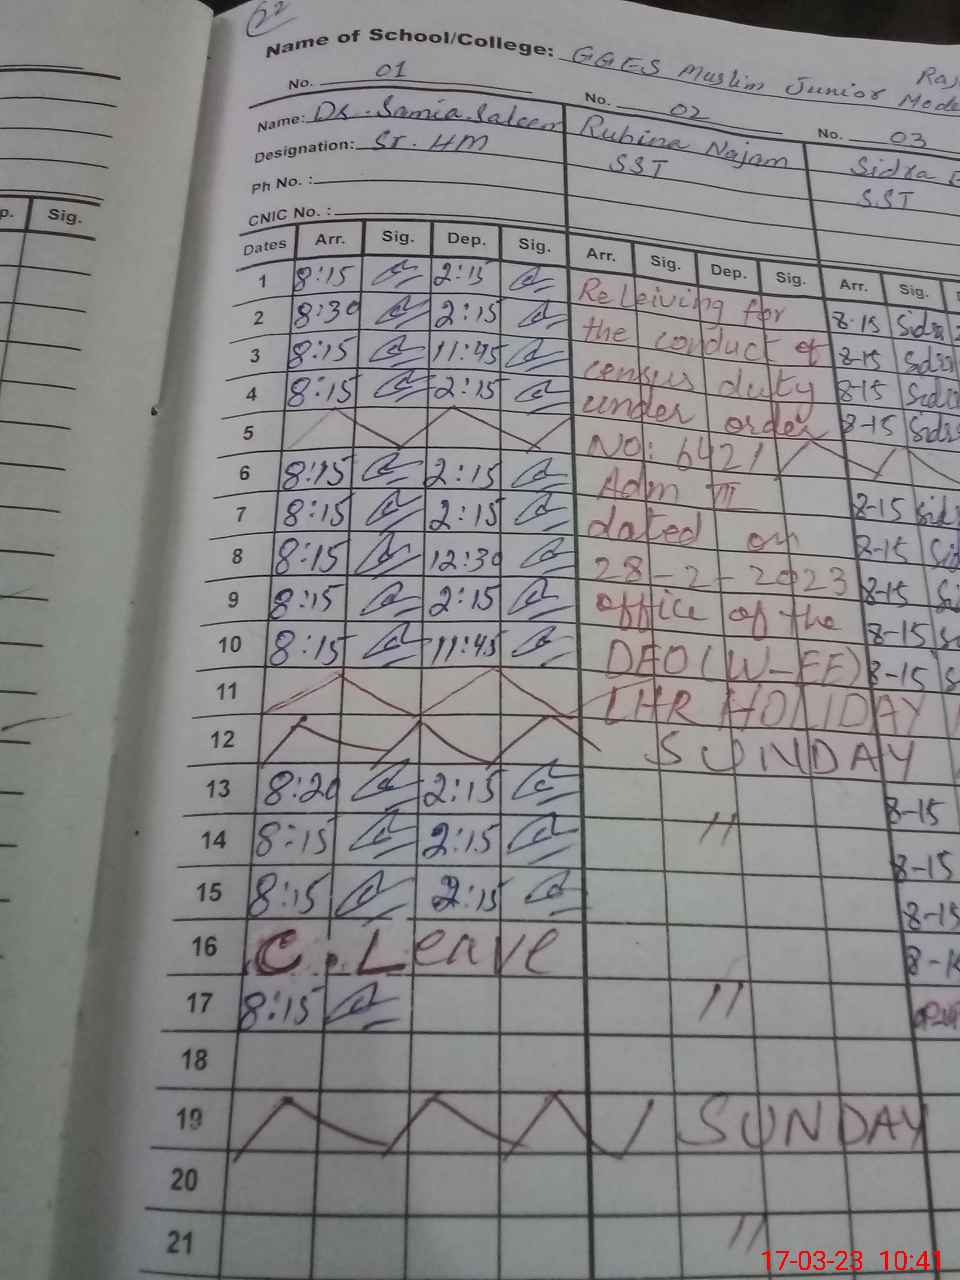 22
Name of School/College: GGES Muslim Junior Mode
No. 01 No. 02 No. 03
Name: Dr. Samia Saleem Rubina Najam Sidra
Designation: Sr. HM SST SST
Ph No. :
CNIC No. :
p. Sig.
Dates Arr. Sig. Dep. Sig. Arr. Sig. Dep. Sig. Arr. Sig.
1 8:15 2:15 Releiving for 8-15 Sidra
2 8:30 2:15 the conduct of 8-15
3 8:15 11:45 census duty 8-15
4 8:15 2:15 under order 8-15
5 NO: 6421
6 8:15 2:15 Adm III 8-15
7 8:15 2:15 dated on 8-15
8 8:15 12:30 28-2-2023 8-15
9 8:15 2:15 office of the 8-15
10 8:15 11:45 DEO (W-EE) 8-15
11 LHR HOLIDAY
12 SUNDAY
13 8:20 2:15 8-15
14 8:15 2:15 " 8-15
15 8:15 2:15 8-15
16 C. Leave
17 8:15 "
18
19 SUNDAY
20
21 "
17-03-23 10:41